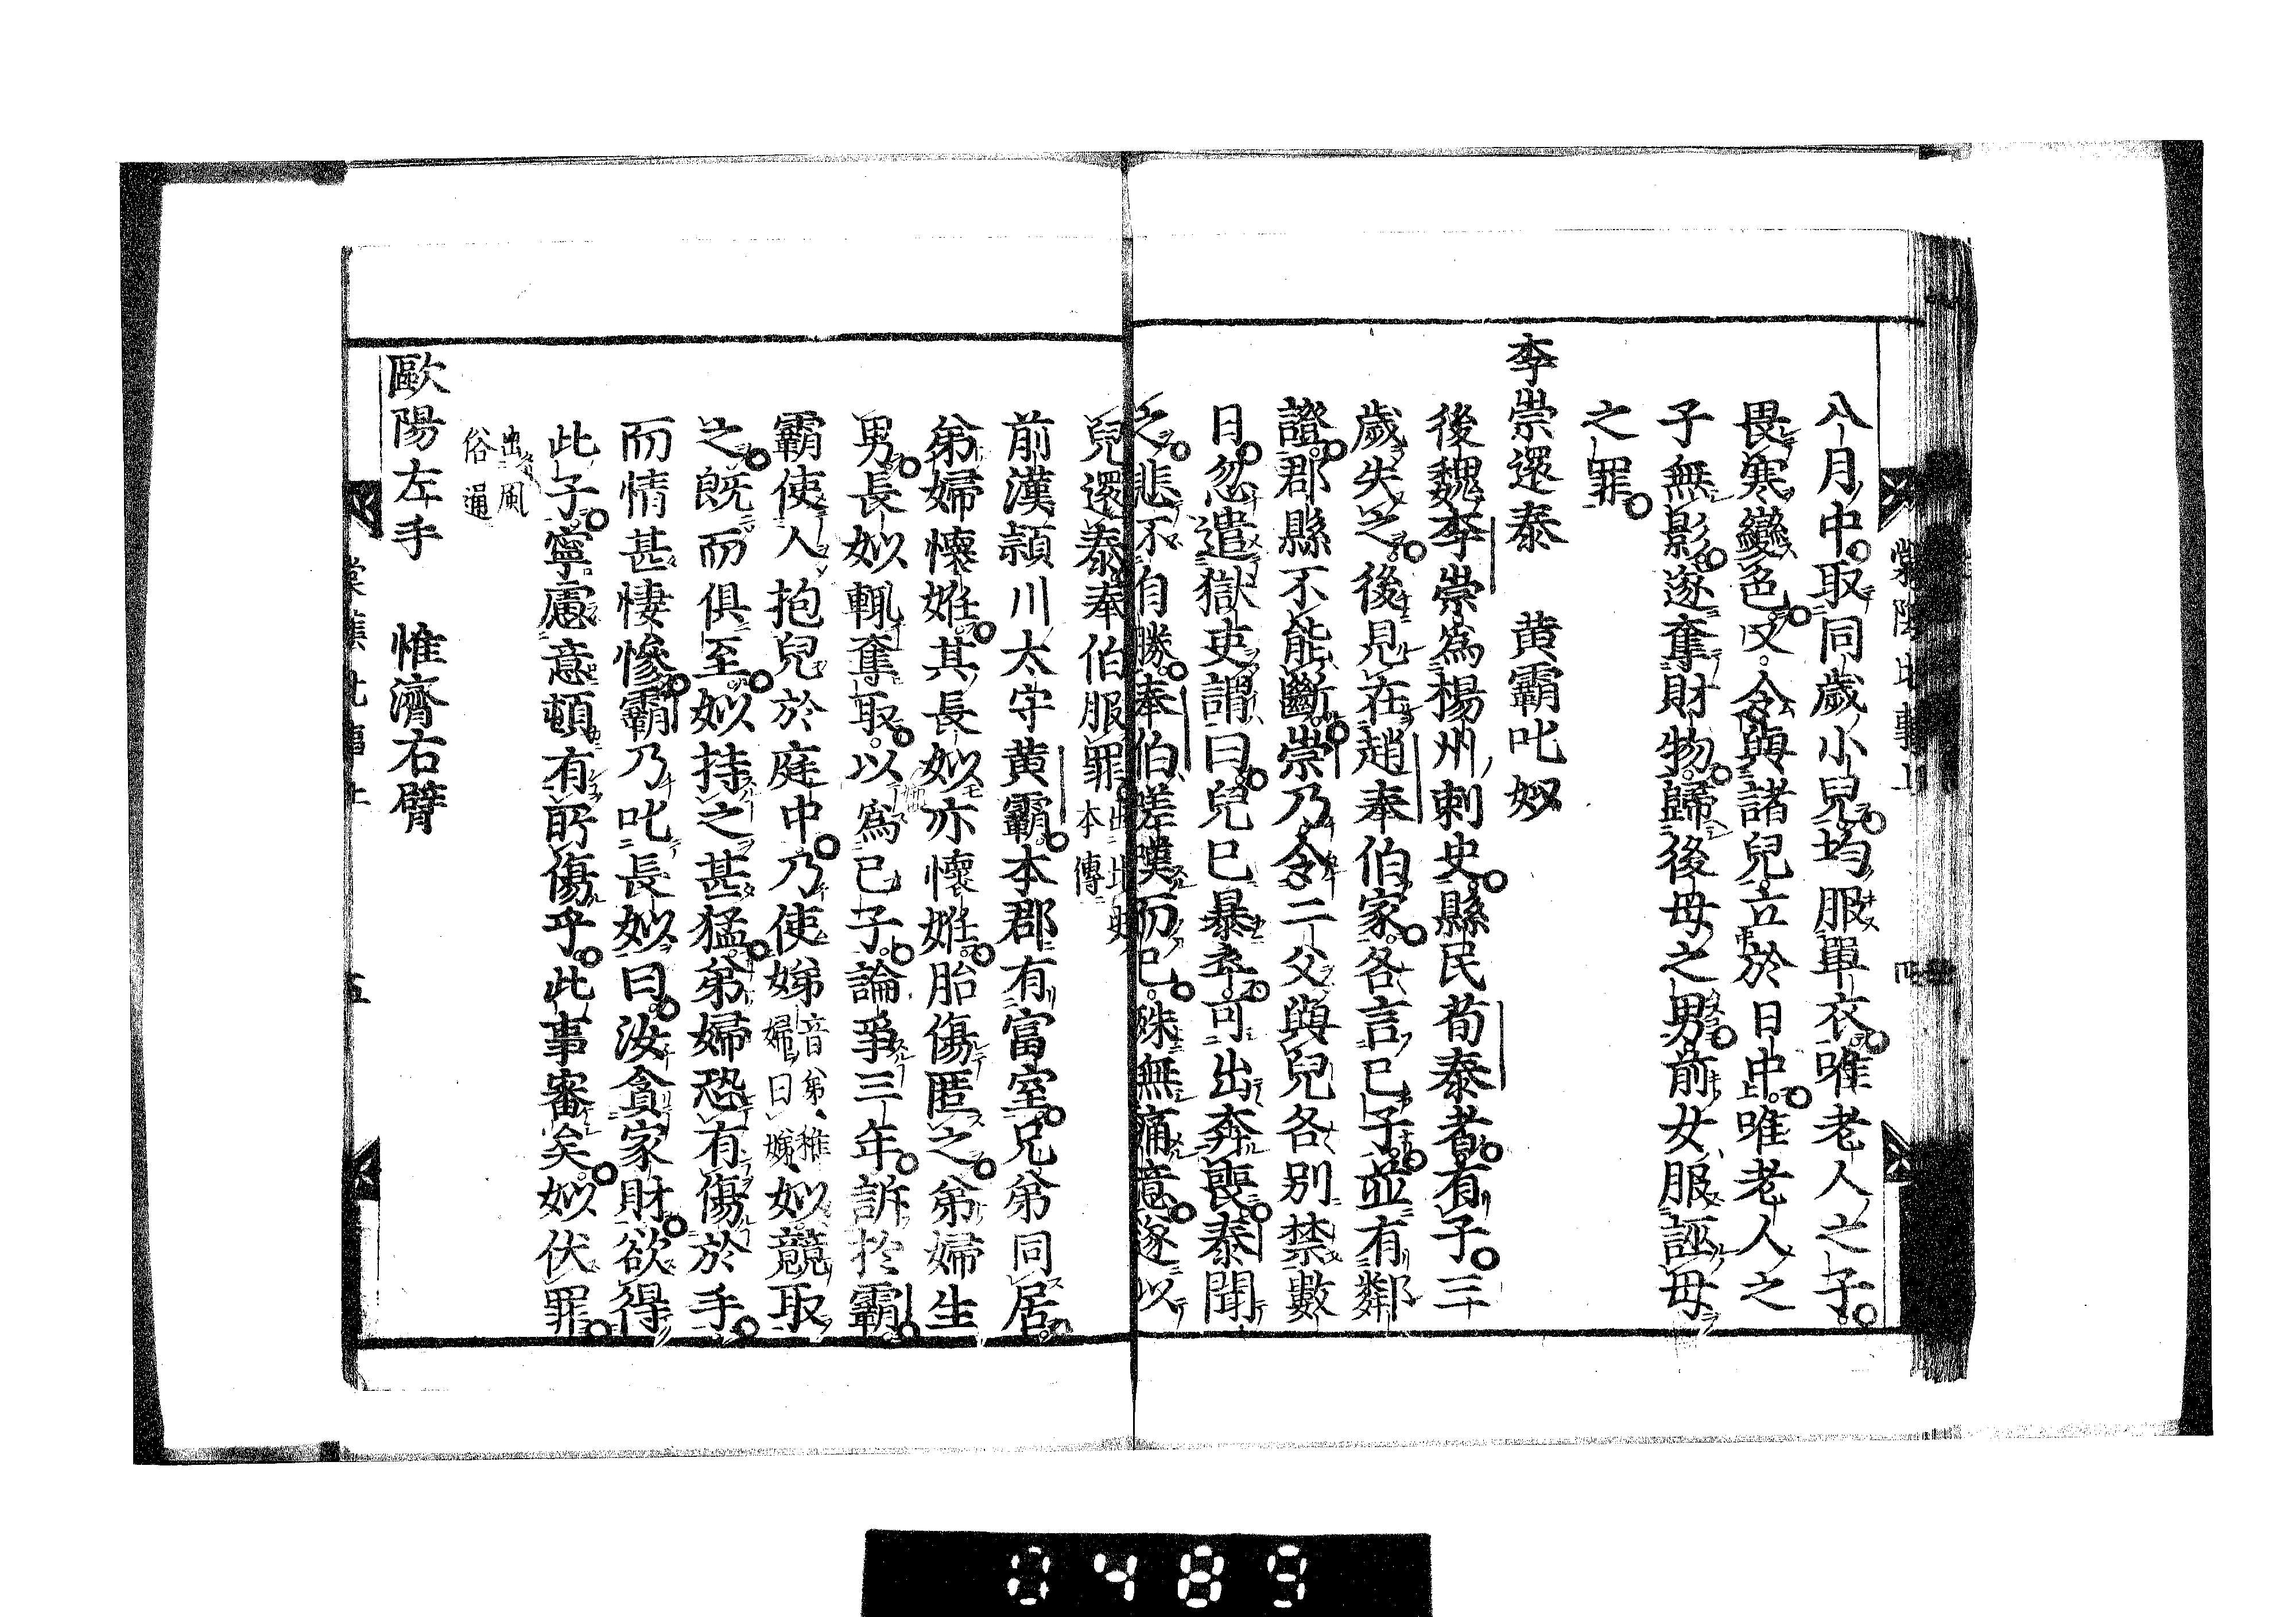 八月中取同歲小兒均服單衣唯老人之子
畏寒變色又令與諸兒立於日中唯老人之
子無影遂奪財物歸後母之男前女服誣母
之罪
李崇還泰　黃霸叱姒
後魏李崇爲楊州刺史縣民荀泰者有子三
歲失之後見在趙奉伯家各言己子並有鄰
證郡縣不能斷崇乃令二父與兒各別禁數
日忽遣獄吏謂曰兒已暴卒可出奔喪泰聞
之悲不自勝奉伯嗟嘆而已殊無痛意遂以
兒還泰奉伯服罪出北史本傳
前漢頴川太守黃霸本郡有富室兄弟同居
弟婦懷姙其長姒亦懷姙胎傷匿之弟婦生
男長姒輒奪取以爲己子論爭三年訴於霸
霸使人抱兒於庭中乃使娣音弟稚婦曰娣姒競取
之旣而俱至姒持之甚猛弟婦恐有傷於手
而情甚悽慘霸乃叱長姒曰汝貪家財欲得
此子寧慮意頓有所傷乎此事審矣姒伏罪
出風俗通
歐陽左手　惟濟右臂